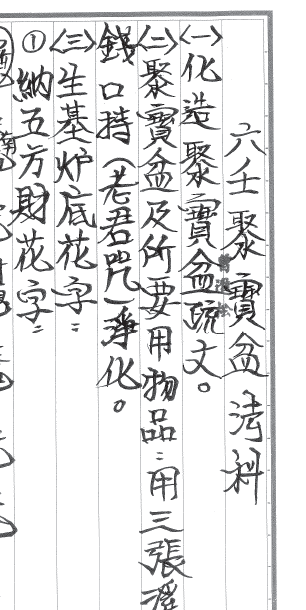 六壬聚寶盆法科
㈠化造聚寶盆疏文。
㈡聚寶盆及所要用物品：用三張
錢口持（老君咒）淨化。
㈢生基炉底花字：
①納五方財花字：